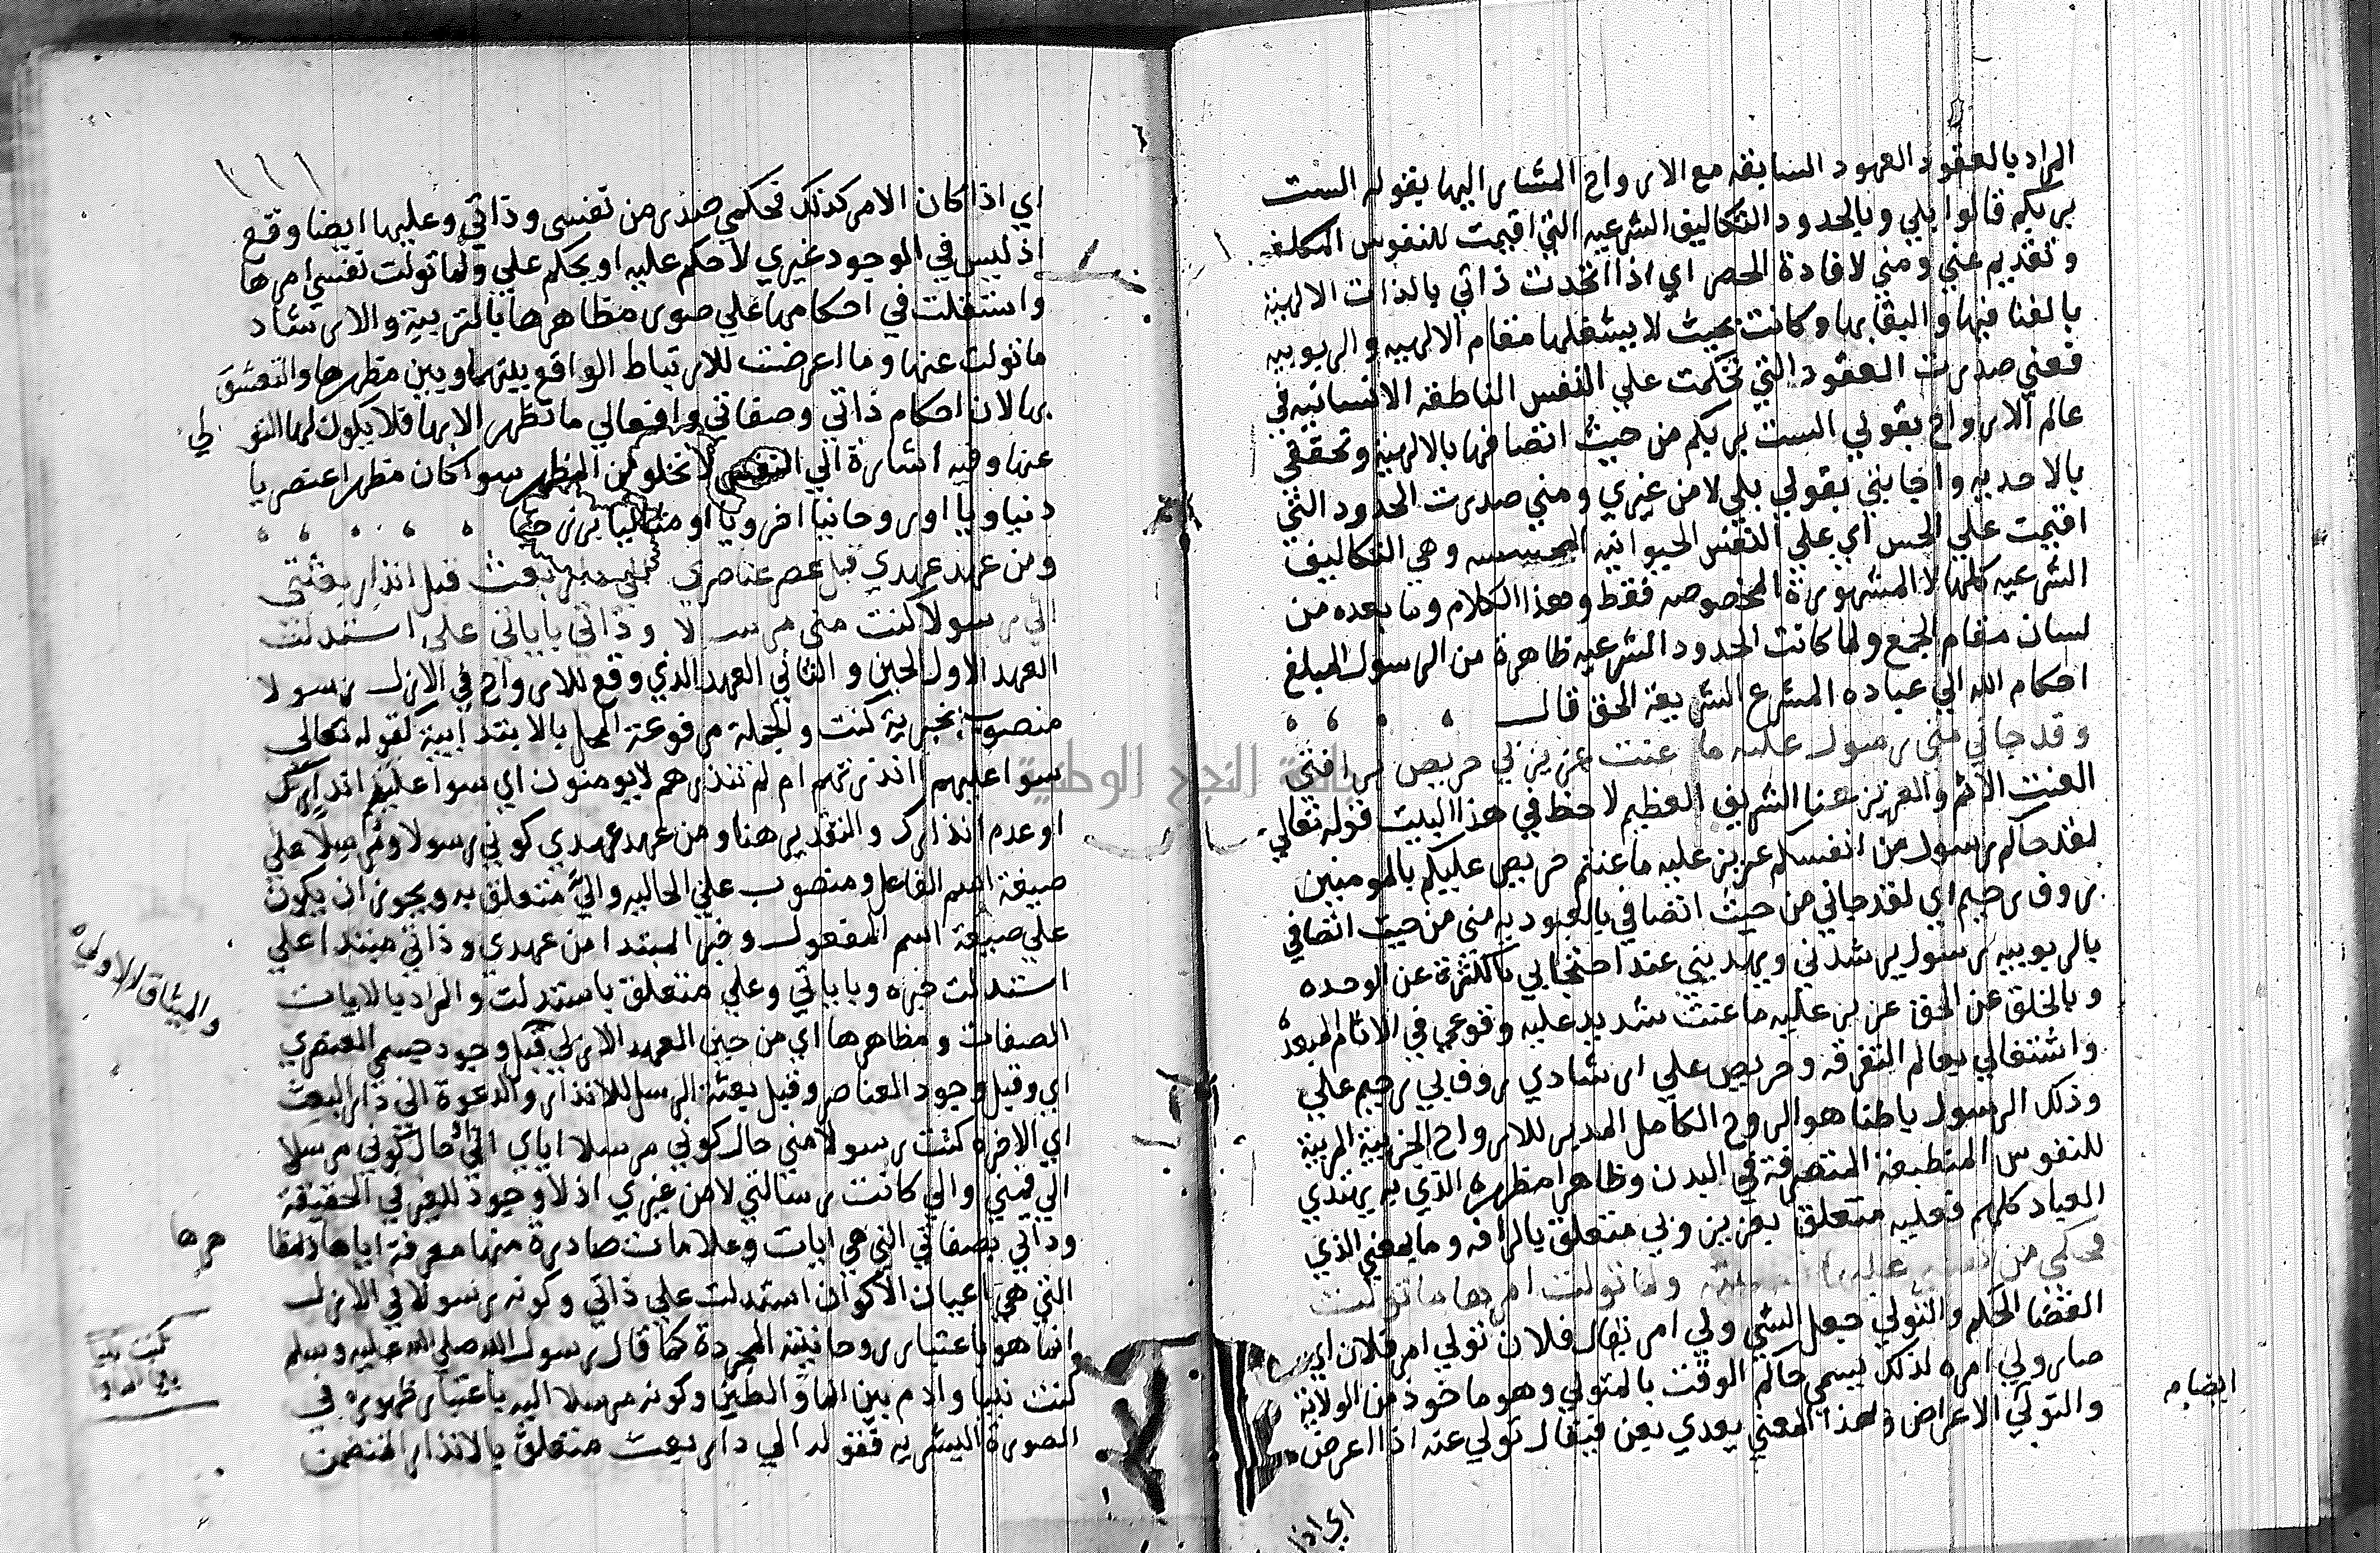 المراد بالعقود العهود السابقه مع الارواح المشار اليها بقوله الست
بربكم قالوا بلي وبالحدود التكاليف الشرعيه التي اقيمت للنفوس المكلفه
وتقديم عني ومني لافادة الحصر اي اذا اتحدت ذاتي بالذات الالهية
بالفنا فيها والبقا بها وكانت بحيث لا يشغلها مقام الالهيه والربوبيه
فعني صدرت العقود التي تحكمت علي النفس الناطقه الانسانيه في
عالم الارواح بقولي الست بربكم من حيث اتصافها بالالهية وتحققي
بالاحديه واجابني بقولي بلي لا من غيري ومني صدرت الحدود التي
اقيمت علي الحس اي علي النفس الحيوانيه وهي التكاليف
الشرعيه كلها لا المشهورة المخصوصه فقط وهذا الكلام وما بعده من
لسان مقام الجمع ولما كانت الحدود الشرعيه ظاهرة من الرسول المبلغ
احكام الله الي عباده المشرع الشريعة الحق قال
وقد جاني مني رسول عليه ما عنت عزيز بي حريص لرافتي
العنت الاثم والعزيز هنا الشريف العظيم لاحظ في هذا البيت قوله تعالي
لقد جاكم رسول من انفسكم عزيز عليه ما عنتم حريص عليكم بالمومنين
روف رحيم اي لقد جاني من حيث اتصافي بالعبوديه مني من حيث اتصافي
بالربوبيه رسول يرشدني ويهديني عند احتجابي بالكثرة عن الوحده
وبالخلق عن الحق عزيز عليه ما عنت شديد عليه وقوعي في الاثام المبعده
واشتغالي بعالم التفرقه وحريص علي ارشادي روف بي رحيم علي
وذلك الرسول باطنا هو الروح الكامل المدبر للارواح الجزيية المربية
للنفوس المنطبعة المتصرفة في البدن وظاهرا مظهره الذي به يهتدي
العباد كلهم فعليه متعلق بعزيز وبي متعلق بالرافه وما بمعني الذي
فحكمي من نفسي عليها ولما تولت امرها ما تولت
القضا الحكم والتولي جعل الشي ولي امر يقال فلان تولي امر فلان اي
صار ولي امره لذلك يسمي حاكم الوقت بالمتولي وهو ماخوذ من الولاية
والتولي الاعراض وهذا المعني يعدي بعن فيقال تولي عنه اذا اعرض
ايضا م
اي اذا
اي اذا كان الامر كذلك فحكمي صدر من نفسي وذاتي وعليها ايضا وقع
اذ ليس في الموجود غيري لاحكم عليه او يحكم علي ولما تولت نفسي امرها
واستقلت في احكامها علي صور مظاهرها بالتربية والارشاد
ما تولت عنها وما اعرضت للارتباط الواقع بينها وبين مظهرها والتعشق
بها لان احكام ذاتي وصفاتي وافعالي ما تظهر الا بها فلا يكون لها التو لي
عنها وفيه اشارة الي النفس لا تخلو عن المظهر سوا كان مظهرا عنصريا
دنياويا او روحانيا اخرويا او مثاليا برزخيا
ومن عهد عهدي قبل عصر عناصري الي دار بعث قبل انذار بعثتي
الي رسولا كنت مني مرسلا وذاتي باياتي علي استدلت
العهد الاول الحين والثاني العهد الذي وقع للارواح في الازل رسولا
منصوب بخبرية كنت والجملة مرفوعة المحل بالابتدايية كقوله تعالي
سوا عليهم اانذرتهم ام لم تنذرهم لا يومنون اي سوا عليهم انذارك
او عدم انذارك والتقدير هنا ومن عهد عهدي كوني رسولا ومرسلا علي
صيغة اسم الفاعل ومنصوب علي الحاليه والي متعلق به ويجوز ان يكون
علي صيغة اسم المفعول وخبر المبتدا من عهدي وذاتي مبتدا علي
والميثاق الاولي
استدلت خبره وباياتي وعلي متعلق باستدلت والمراد بالايات
الصفات ومظاهرها اي من حين العهد الازلي قبل وجود جسمي العنصري
اي وقبل وجود العناصر وقبل بعثة الرسل للانذار والدعوة الي دار البعث
اي الاخره كنت رسولا مني حال كوني مرسلا اياي الي حال كوني مرسلا
الي فمني والي كانت رسالتي لا من غيري اذ لا وجود للغير في الحقيقة
وذاتي بصفاتي التي هي ايات وعلامات صادرة منها معرفة اياها ومظا
هرها
التي هي اعيان الاكوان استدلت علي ذاتي وكونه رسولا في الازل
انما هو باعتبار روحانيته المجردة كما قال رسول الله صلي الله عليه وسلم
كنت نبيا وادم بين الما والطين وكونه مرسلا اليه باعتبار ظهوره في
كنت نبيا
الصورة البشريه فقوله الي دار بعث متعلق بالانذار المتضمن
جامعة النجاح الوطنية